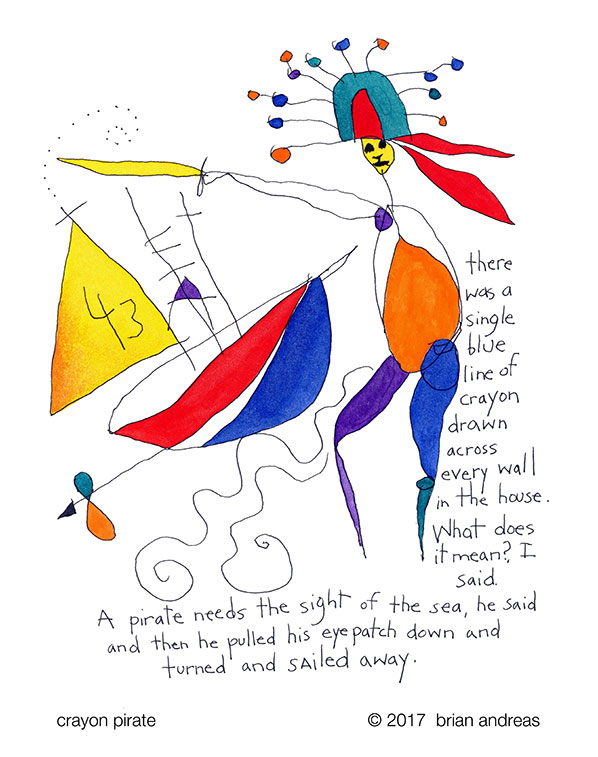 43
there
was a
single
blue
line of
crayon
drawn
across
every wall
in the house.
What does
it mean? I
said.
A pirate needs the sight of the sea, he said
and then he pulled his eyepatch down and
turned and sailed away.
crayon pirate
© 2017 brian andreas